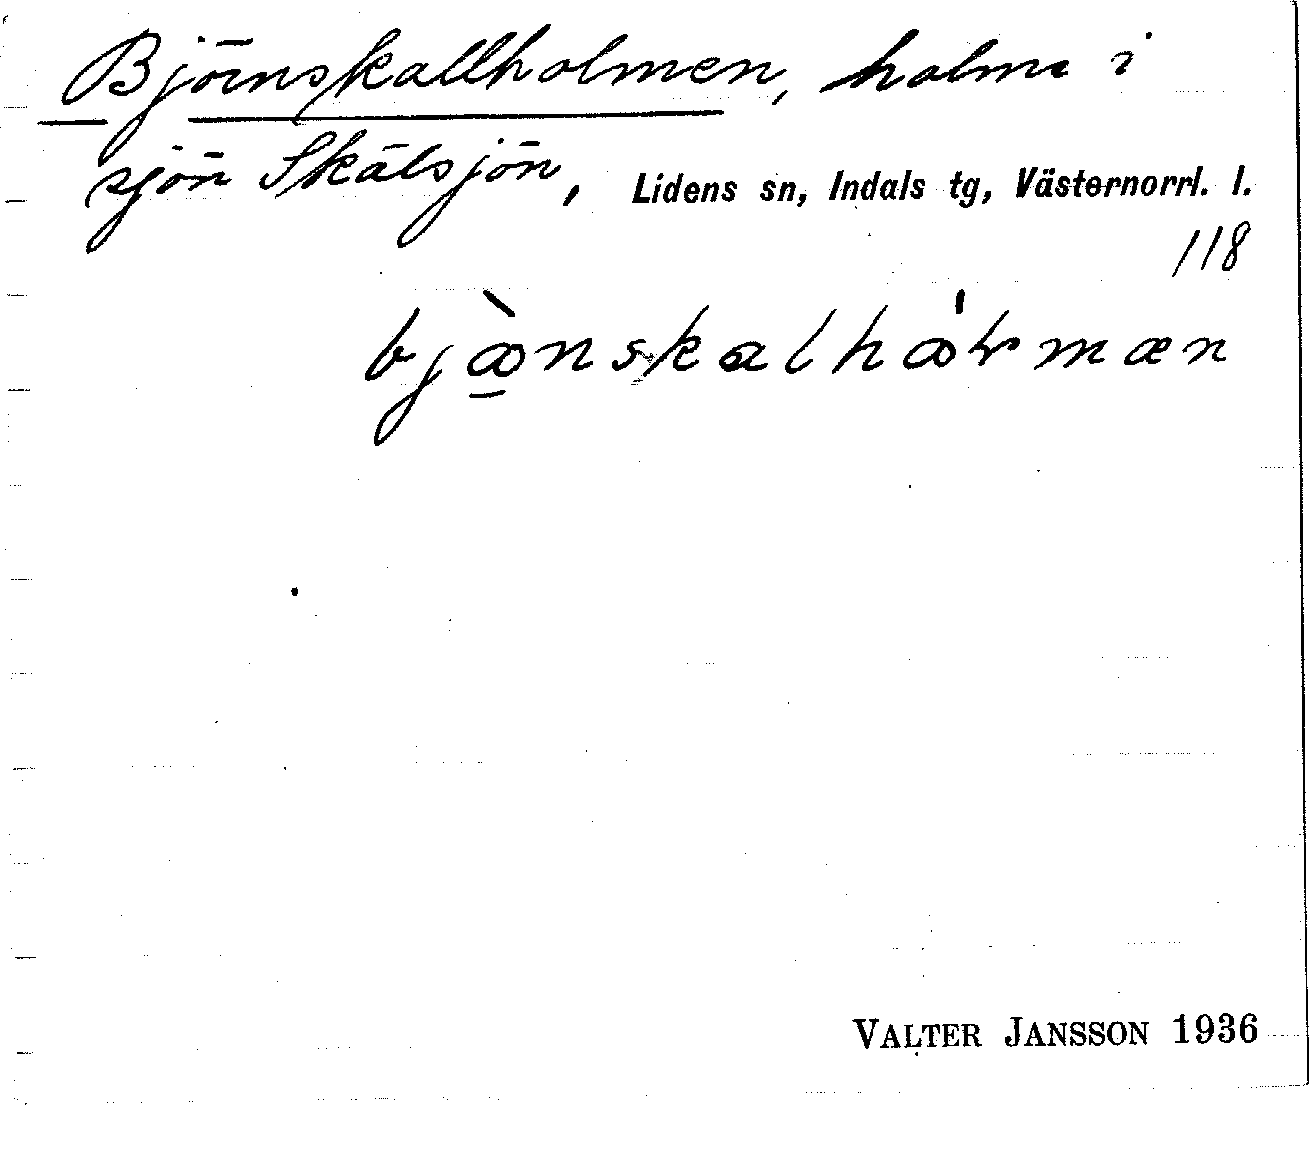 Björnskallholmen, holme i
sjön Skälsjön, Lidens sn, Indals tg, Västernorrl. l.
118
VALTER JANSSON 1936